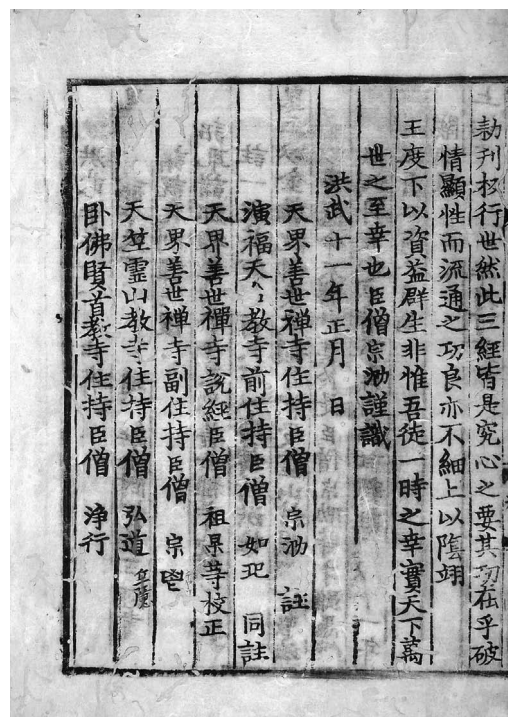 勑刋板行世然此三經皆是究心之要其功在乎破
情顯性而流通之功良亦不細上以隂翊
王度下以資益群生非惟吾徒一時之幸實天下萬
世之至幸也臣僧宗泐謹識
洪武十一年正月 日
天界善世禅寺住持臣僧 宗泐 註
演福天台教寺前住持臣僧 如玘 同註
天界善世禪寺說經臣僧 祖杲等校正
天界善世禅寺副住持臣僧 宗鬯
天竺霊山教寺住持臣僧 弘道
卧佛賢首教寺住持臣僧 淨行